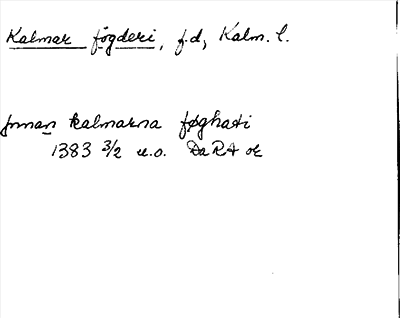 Kalmar fögderi, f.d, Kalm. l.
jnnan kalmarna føghati
1383 3/2 u.o. DaRA or